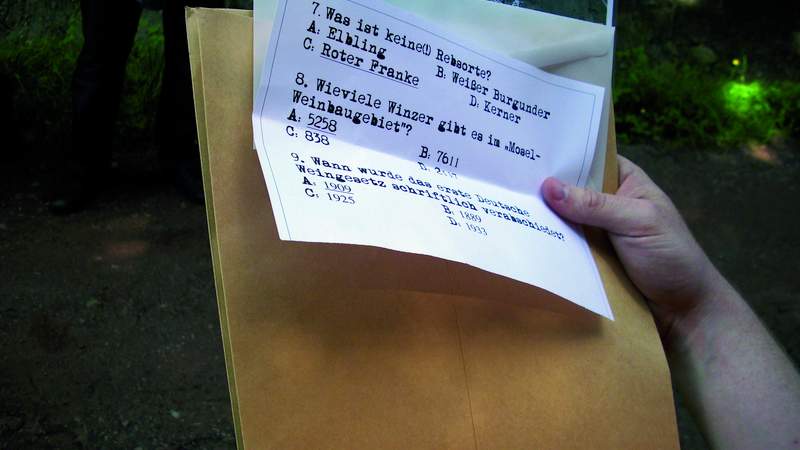 7. Was ist keine(!) Rebsorte?
A: Elbling B: Weißer Burgunder
C: Roter Franke D: Kerner
8. Wieviele Winzer gibt es im „Mosel-
Weinbaugebiet"?
A: 5258 B: 7611
C: 838 D:
9. Wann wurde das erste Deutsche
Weingesetz schriftlich verabschiedet?
A: 1909 B: 1889
C: 1925 D: 1933